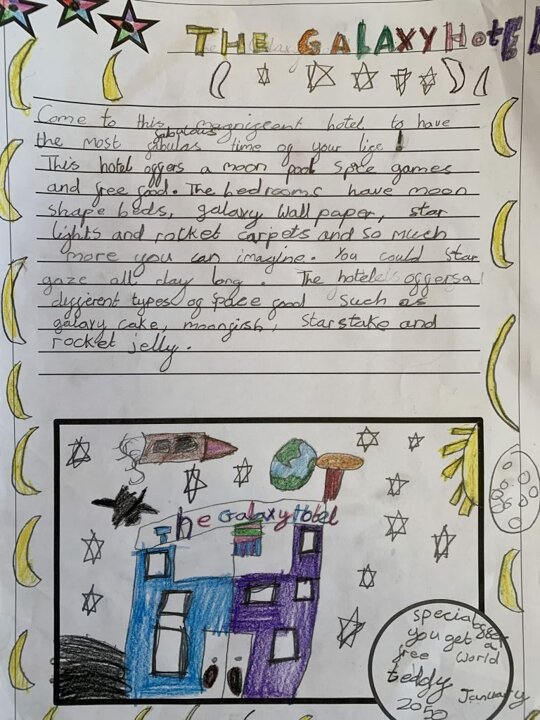 THE GALAXY HotEL
Come to this magnigecent hotel to have
the most fabulous time og your lige!
This hotel oggers a moon pool spice games
and gree good. The bedrooms have moon
shape beds, galaxy wall paper, star
lights and rocket carpets and so much
more you can imagine. You could star
gaze all day long. The hotel oggers al
diggerent types og space good such as
galaxy cake, moongish, starstake and
rocket jelly.
The Galaxy Hotel
special
you get a
gree world
teddy
January
2050